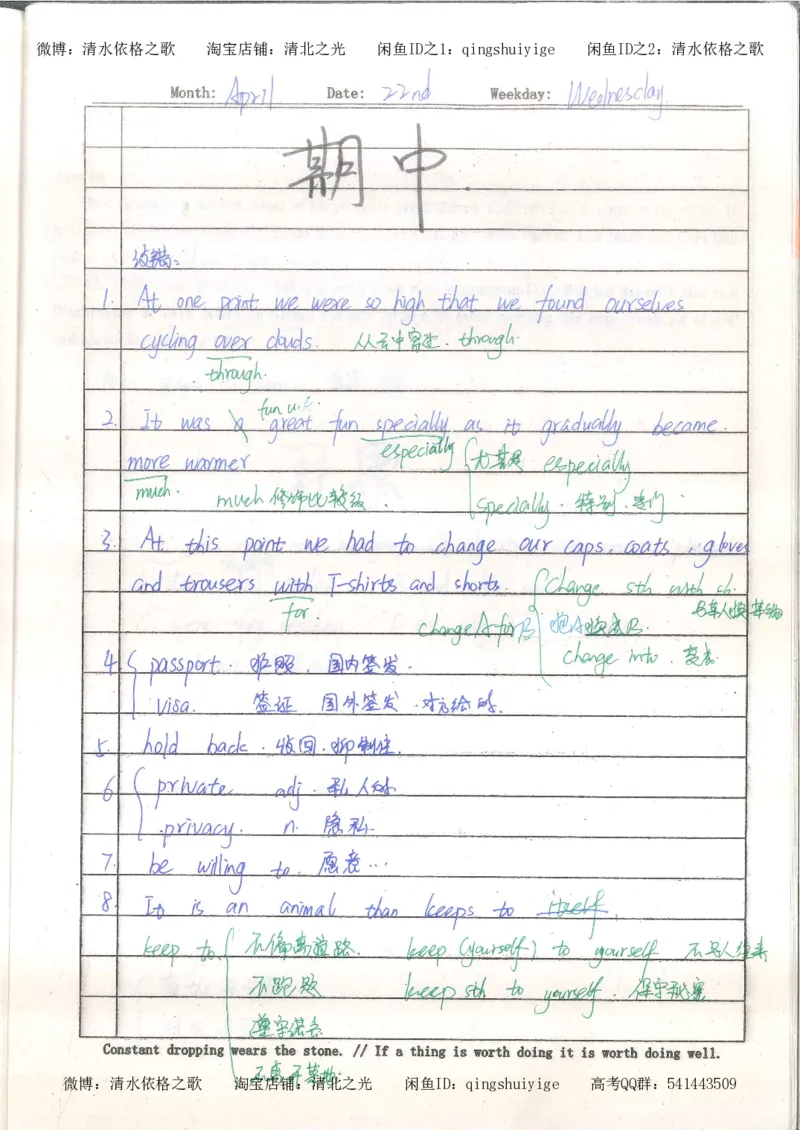 微博：清水依格之歌 淘宝店铺：清北之光 闲鱼ID之1：qingshuiyige 闲鱼ID之2：清水依格之歌
Month: April Date: 22nd Weekday: Wednesday
期中.
改错：
1. At one point we were so high that we found ourselves
cycling over clouds. 从云中穿过. through.
through.
fun u.c.
2. It was a great fun specially as it gradually became.
especially { 尤其是 especially
more warmer
much. much 修饰比较级. specially. 特别. 专门.
3. At this point we had to change our caps, coats, gloves
and trousers with T-shirts and shorts. { change sth with sb.
for. 与某人换某物
change A for B 把A换成B.
change into. 变成.
4. { passport. 护照. 国内签发.
visa. 签证 国外签发. 对方给的.
5. hold back. 收回. 抑制住.
6 { private adj. 私人的
privacy. n. 隐私.
7. be willing to. 愿意...
8. It is an animal than keeps to itself.
keep to { 不偏离道路. keep (yourself) to yourself 不与人往来
不跑题 keep sth to yourself. 保守秘密
遵守诺言
Constant dropping wears the stone. // If a thing is worth doing it is worth doing well.
不离开某地.
微博：清水依格之歌 淘宝店铺：清北之光 闲鱼ID：qingshuiyige 高考QQ群：541443509